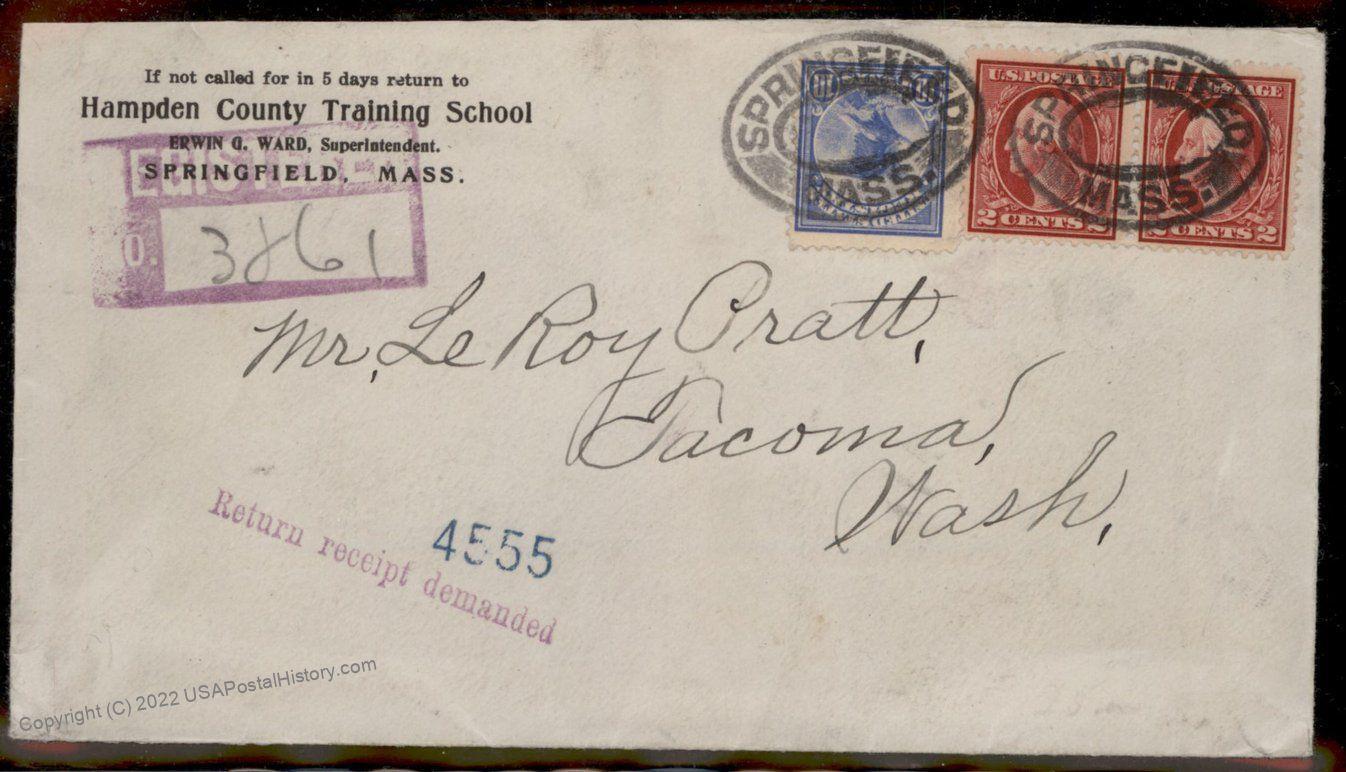 If not called for in 5 days return to
Hampden County Training School
ERWIN G. WARD, Superintendent.
SPRINGFIELD, MASS.
O.
3861
SPRINGFIELD
MASS.
10 10
SPRINGFIELD
MASS.
U.S. POSTAGE
2 CENTS 2
POSTAGE
2 CENTS 2
Mr. Le Roy Pratt,
Tacoma,
Wash.
4555
Return receipt demanded
Copyright (C) 2022 USAPostalHistory.com